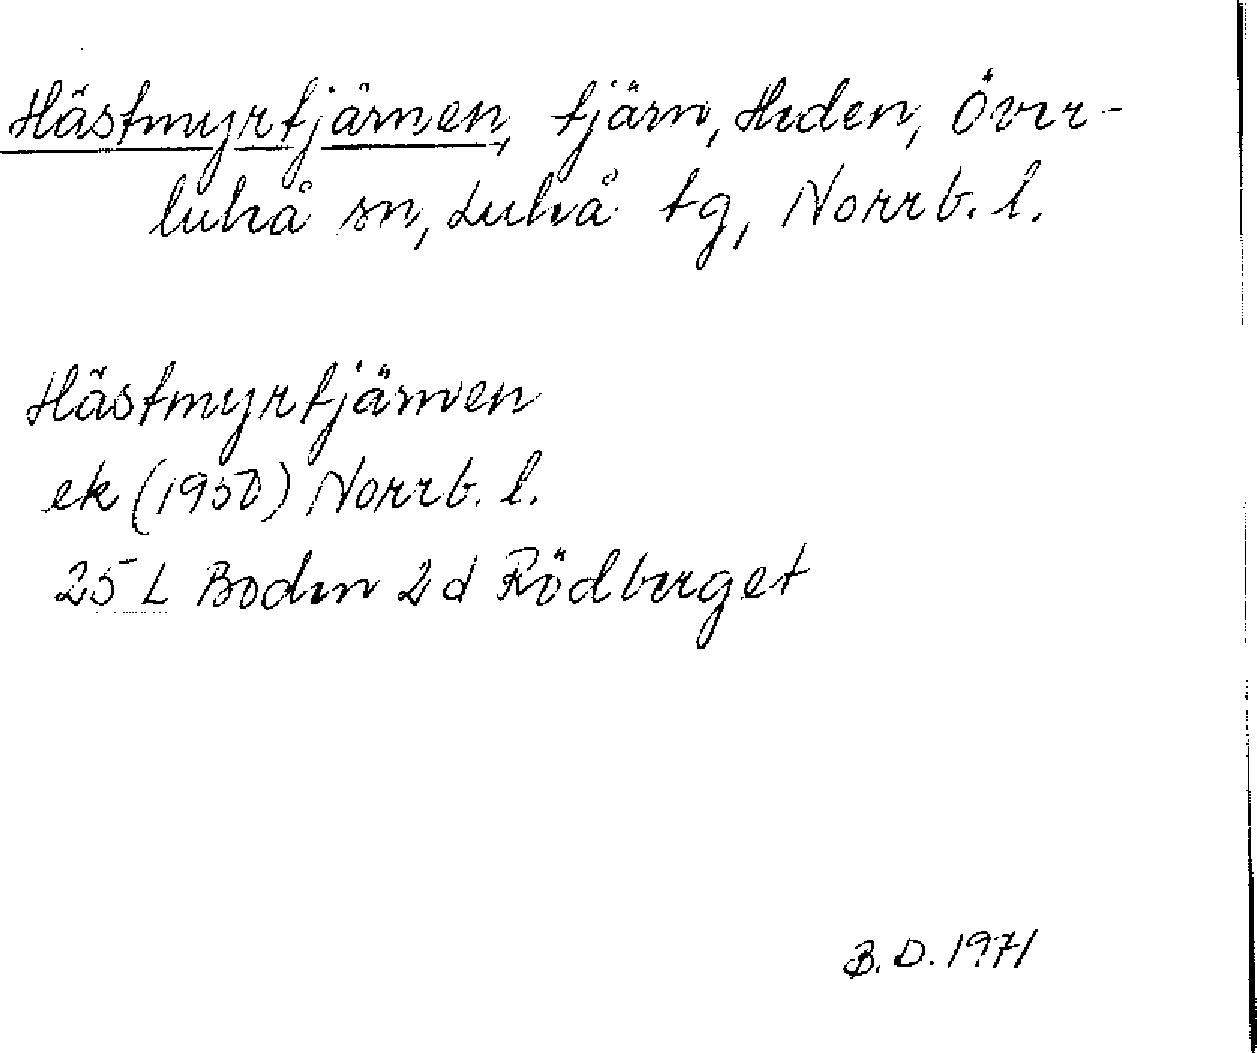 Hästmyrtjärnen, tjärn, Heden, Över-
luleå sn, Luleå tg, Norrb. l.
Hästmyrtjärnen
ek (1950) Norrb. l.
25 L Boden 2d Rödberget
B. D. 1971